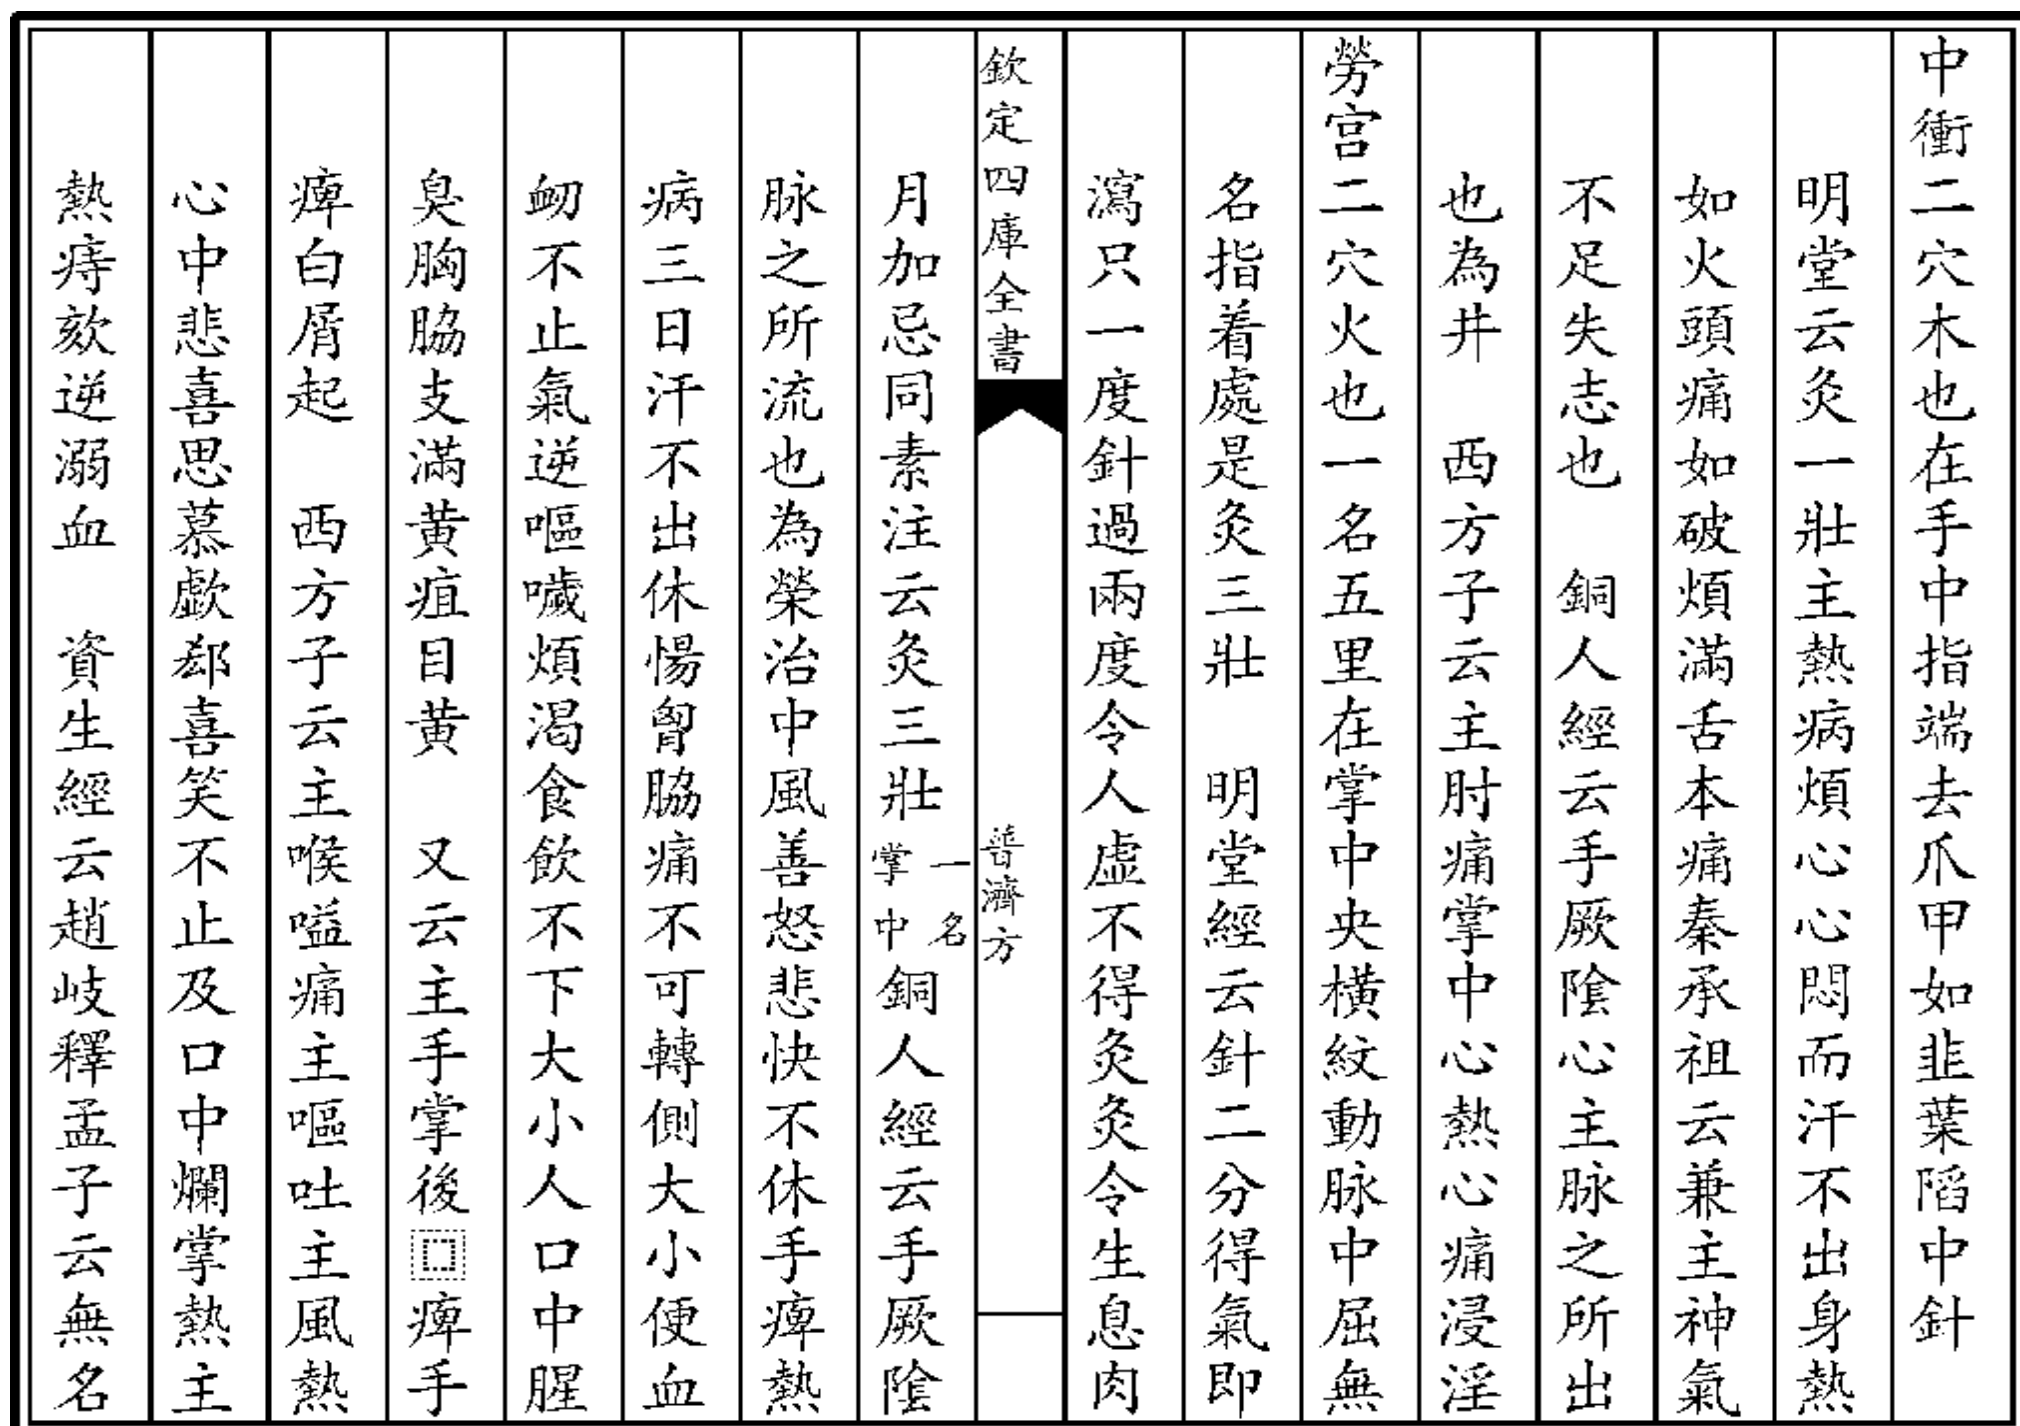 中衝二穴木也在手中指端去爪甲如韭葉陷中針
明堂云灸一壯主熱病煩心心悶而汗不出身熱
如火頭痛如破煩滿舌本痛秦承祖云兼主神氣
不足失志也　銅人經云手厥陰心主脉之所出
也為井　西方子云主肘痛掌中心熱心痛浸淫
勞宫二穴火也一名五里在掌中央橫紋動脉中屈無
名指着處是灸三壯　明堂經云針二分得氣即
瀉只一度針過兩度令人虛不得灸灸令生息肉
欽定四庫全書
普濟方
月加忌同素注云灸三壯一名掌中銅人經云手厥陰
脉之所流也為榮治中風善怒悲快不休手痺熱
病三日汗不出休惕胷脇痛不可轉側大小便血
衂不止氣逆嘔噦煩渴食飲不下大小人口中腥
臭胸脇支滿黄疸目黄　又云主手掌後痺手
痺白屑起　西方子云主喉嗌痛主嘔吐主風熱
心中悲喜思慕歔郄喜笑不止及口中爛掌熱主
熱痔欬逆溺血　資生經云趙岐釋孟子云無名